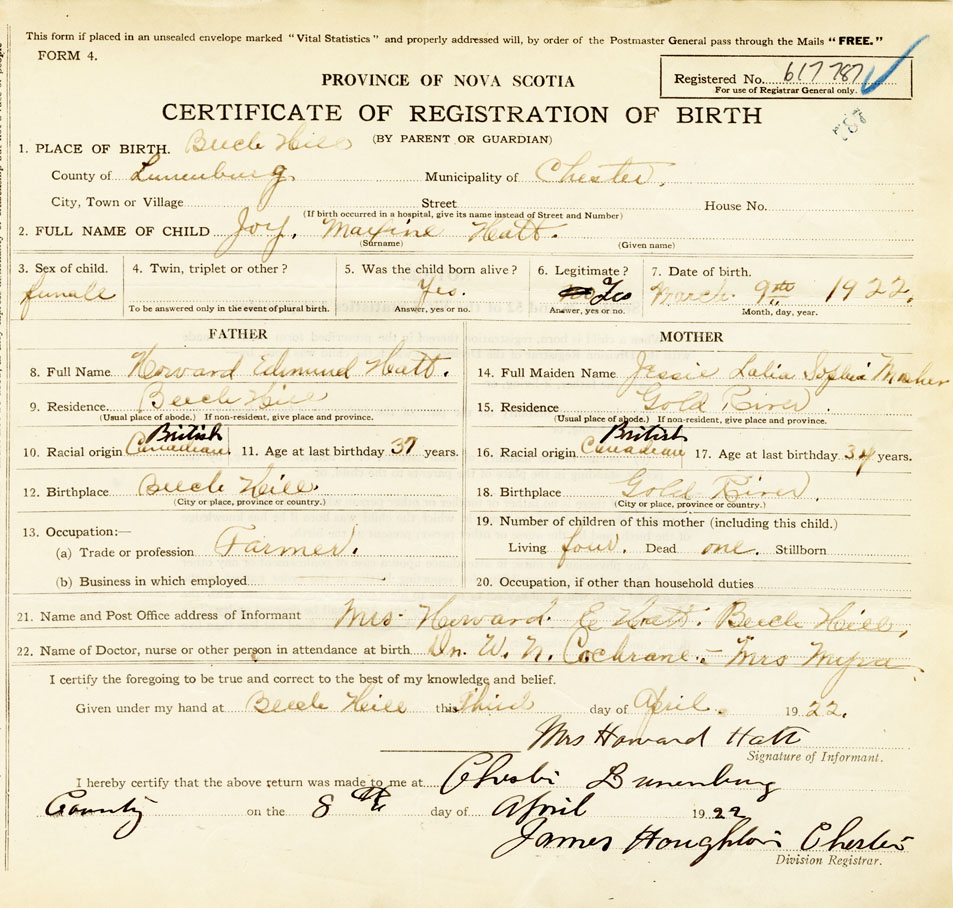 This form if placed in an unsealed envelope marked "Vital Statistics" and properly addressed will, by order of the Postmaster General pass through the Mails "FREE."
FORM 4.
PROVINCE OF NOVA SCOTIA
Registered No. 617787
For use of Registrar General only.
CERTIFICATE OF REGISTRATION OF BIRTH
787
(BY PARENT OR GUARDIAN)
1. PLACE OF BIRTH. Beech Hill
County of Lunenburg Municipality of Chester.
City, Town or Village Street House No.
(If birth occurred in a hospital, give its name instead of Street and Number)
2. FULL NAME OF CHILD Joy. Maxine Hatt.
(Surname) (Given name)
3. Sex of child. 4. Twin, triplet or other? 5. Was the child born alive? 6. Legitimate? 7. Date of birth.
female Yes. Yes March 9th 1922.
To be answered only in the event of plural birth. Answer, yes or no. Answer, yes or no. Month, day, year.
FATHER MOTHER
8. Full Name Howard Edmund Hatt. 14. Full Maiden Name Jessie Lalia Sophia Mosher
9. Residence Beech Hill 15. Residence Gold River.
(Usual place of abode.) If non-resident, give place and province. (Usual place of abode.) If non-resident, give place and province.
British British
10. Racial origin Canadian 11. Age at last birthday 37 years. 16. Racial origin Canadian 17. Age at last birthday 34 years.
12. Birthplace Beech Hill. 18. Birthplace Gold River.
(City or place, province or country.) (City or place, province or country.)
13. Occupation:— 19. Number of children of this mother (including this child.)
(a) Trade or profession Farmer. Living four. Dead one. Stillborn
(b) Business in which employed 20. Occupation, if other than household duties
21. Name and Post Office address of Informant Mrs. Howard. E Hatt. Beech Hill,
22. Name of Doctor, nurse or other person in attendance at birth Dr. W. N. Cochrane. - Mrs Myra.
I certify the foregoing to be true and correct to the best of my knowledge and belief.
Given under my hand at Beech Hill this Third day of April. 1922.
Mrs Howard Hatt
Signature of Informant.
I hereby certify that the above return was made to me at Chester Lunenburg
County on the 8th day of April 1922
James Houghton Chester
Division Registrar.